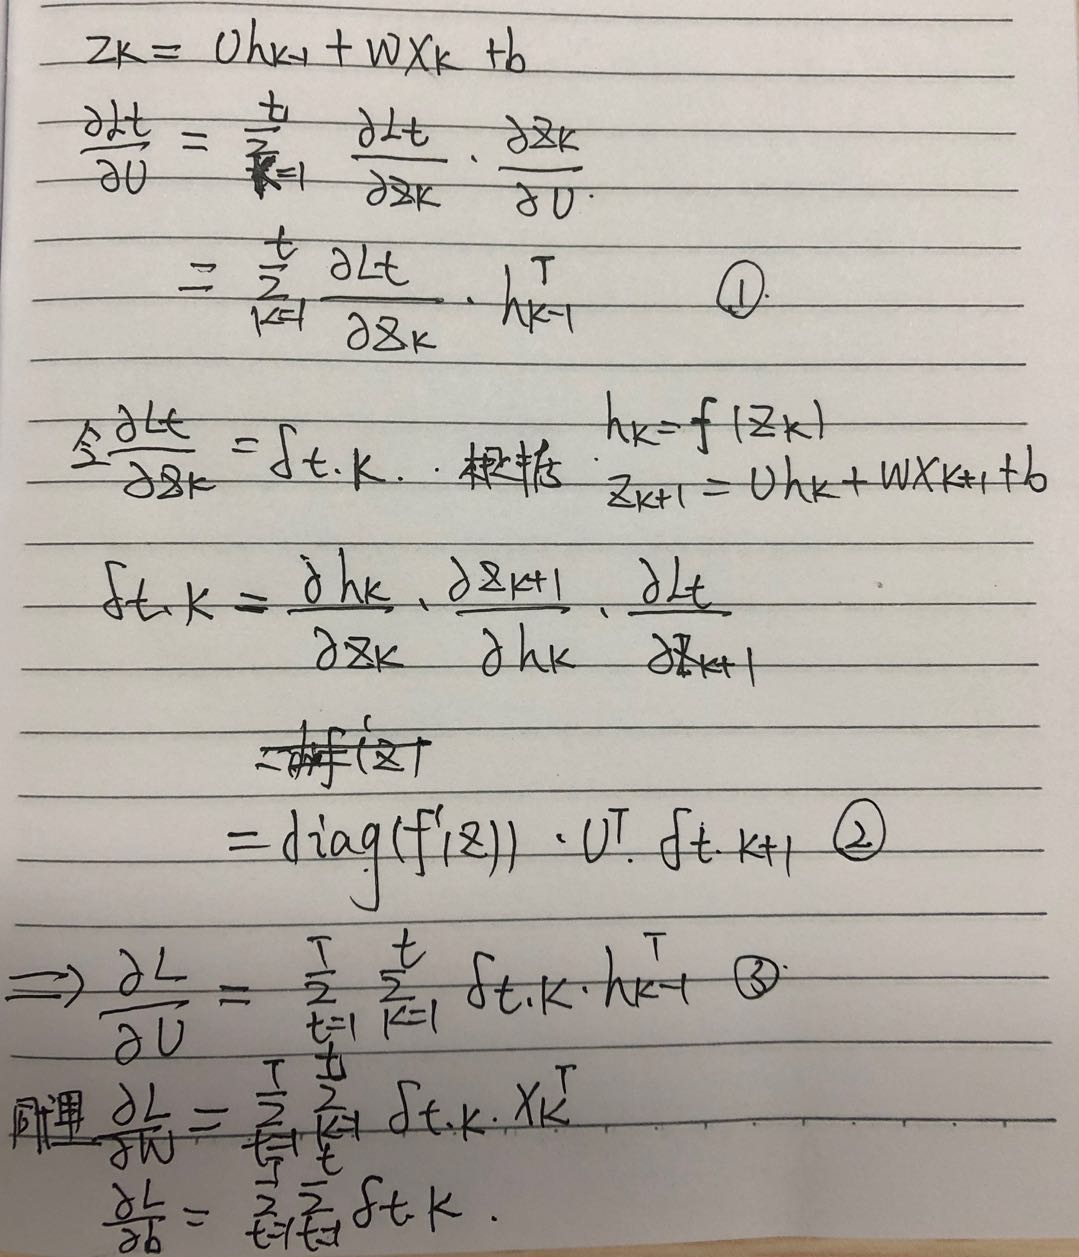 z_k = U h_{k-1} + W x_k + b
∂L_t/∂U = Σ_{k=1}^{t} ∂L_t/∂z_k · ∂z_k/∂U.
= Σ_{k=1}^{t} ∂L_t/∂z_k · h_{k-1}^T ①.
令 ∂L_t/∂z_k = δt.k. . 根据. h_k = f(z_k)
z_{k+1} = U h_k + W x_{k+1} + b
δt.k = ∂h_k/∂z_k · ∂z_{k+1}/∂h_k · ∂L_t/∂z_{k+1}
= diag(f'(z)) · U^T. δt.k+1 ②
⇒ ∂L/∂U = Σ_{t=1}^{T} Σ_{k=1}^{t} δt.k · h_{k-1}^T ③.
同理 ∂L/∂W = Σ_{t=1}^{T} Σ_{k=1}^{t} δt.k. x_k^T
∂L/∂b = Σ_{t=1}^{T} Σ_{t=1}^{t} δt k .